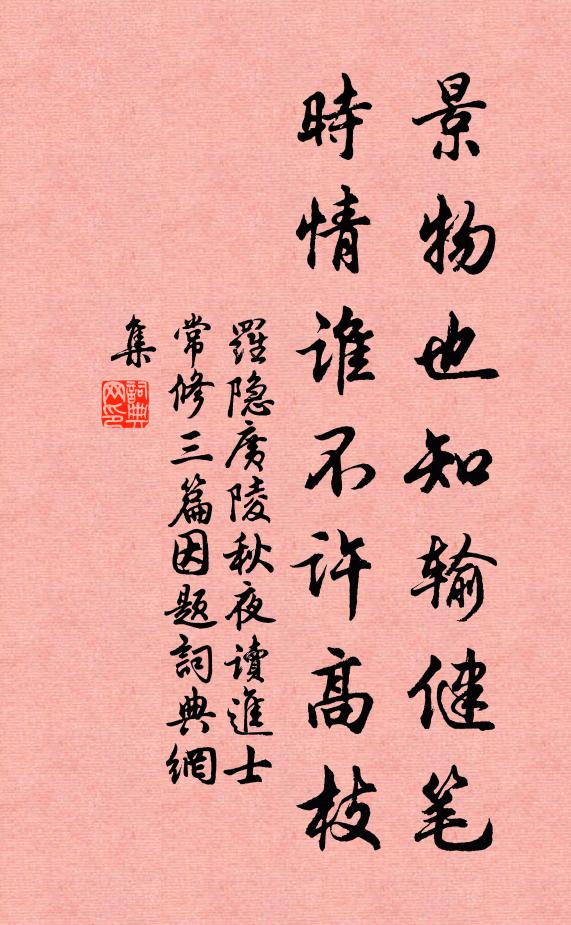 景物也知输健笔
時情谁不许高枝
羅隐廣陵秋夜读進士
常修三篇因题詞典網
集
詞典
网印